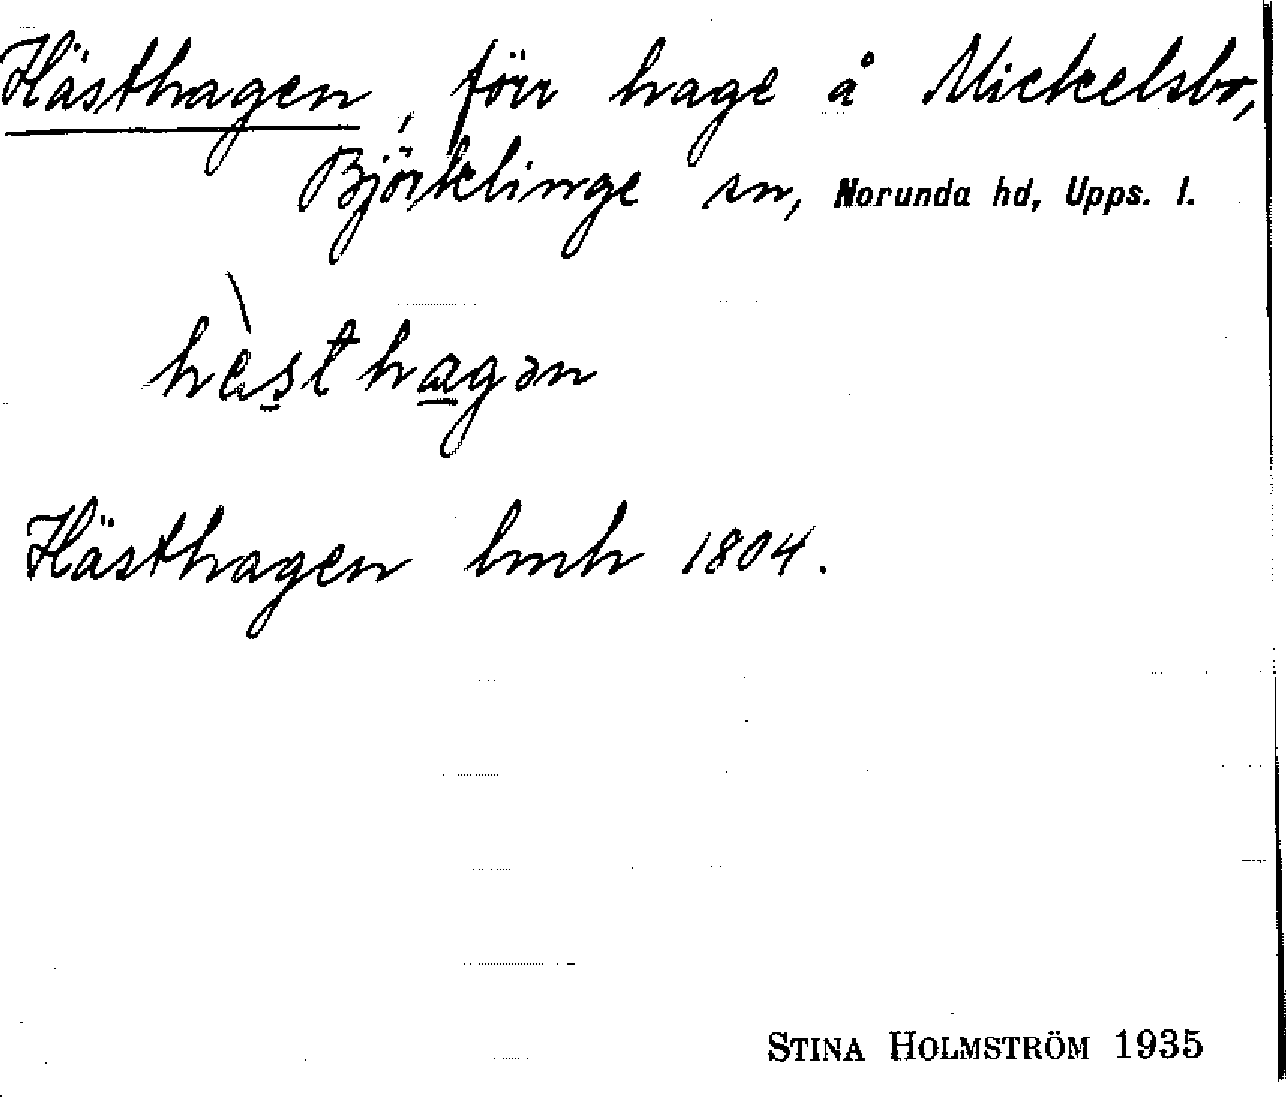 Hästhagen, förr hage å Mickelsbo,
Björklinge sn, Norunda hd, Upps. l.
hàsthagən
Hästhagen lmh 1804.
STINA HOLMSTRÖM 1935